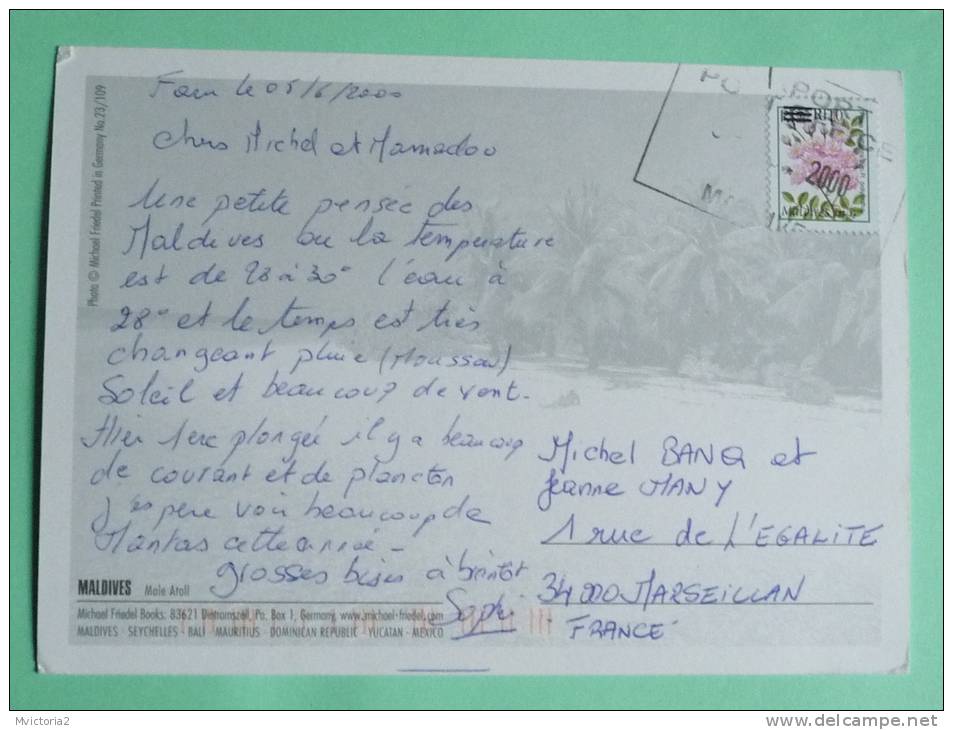 le 05/6/2000
Chers Michel et Mamadou
Une petite pensée des
Maldives ou la température
est de 28 à 30° l'eau à
28° et le temps est très
changeant pluie (Mousson)
Soleil et beaucoup de vent.
Hier 1ere plongée il y a beaucoup
de courant et de plancton
j'espère voir beaucoup de
Mantas cette année -
grosses bises à bientôt
Michel BANQ et
Jeanne MANY
1 rue de L'EGALITE
34000 MARSEILLAN
FRANCE
2000
Photo © Michael Friedel Printed in Germany No.23/109
MALDIVES Male Atoll
Michael Friedel Books: 83621 Dietramszell, Po. Box 1, Germany, www.michael-friedel.com
MALDIVES · SEYCHELLES · BALI · MAURITIUS · DOMINICAN REPUBLIC · YUCATAN - MEXICO
Mvictoria2
www.delcampe.net